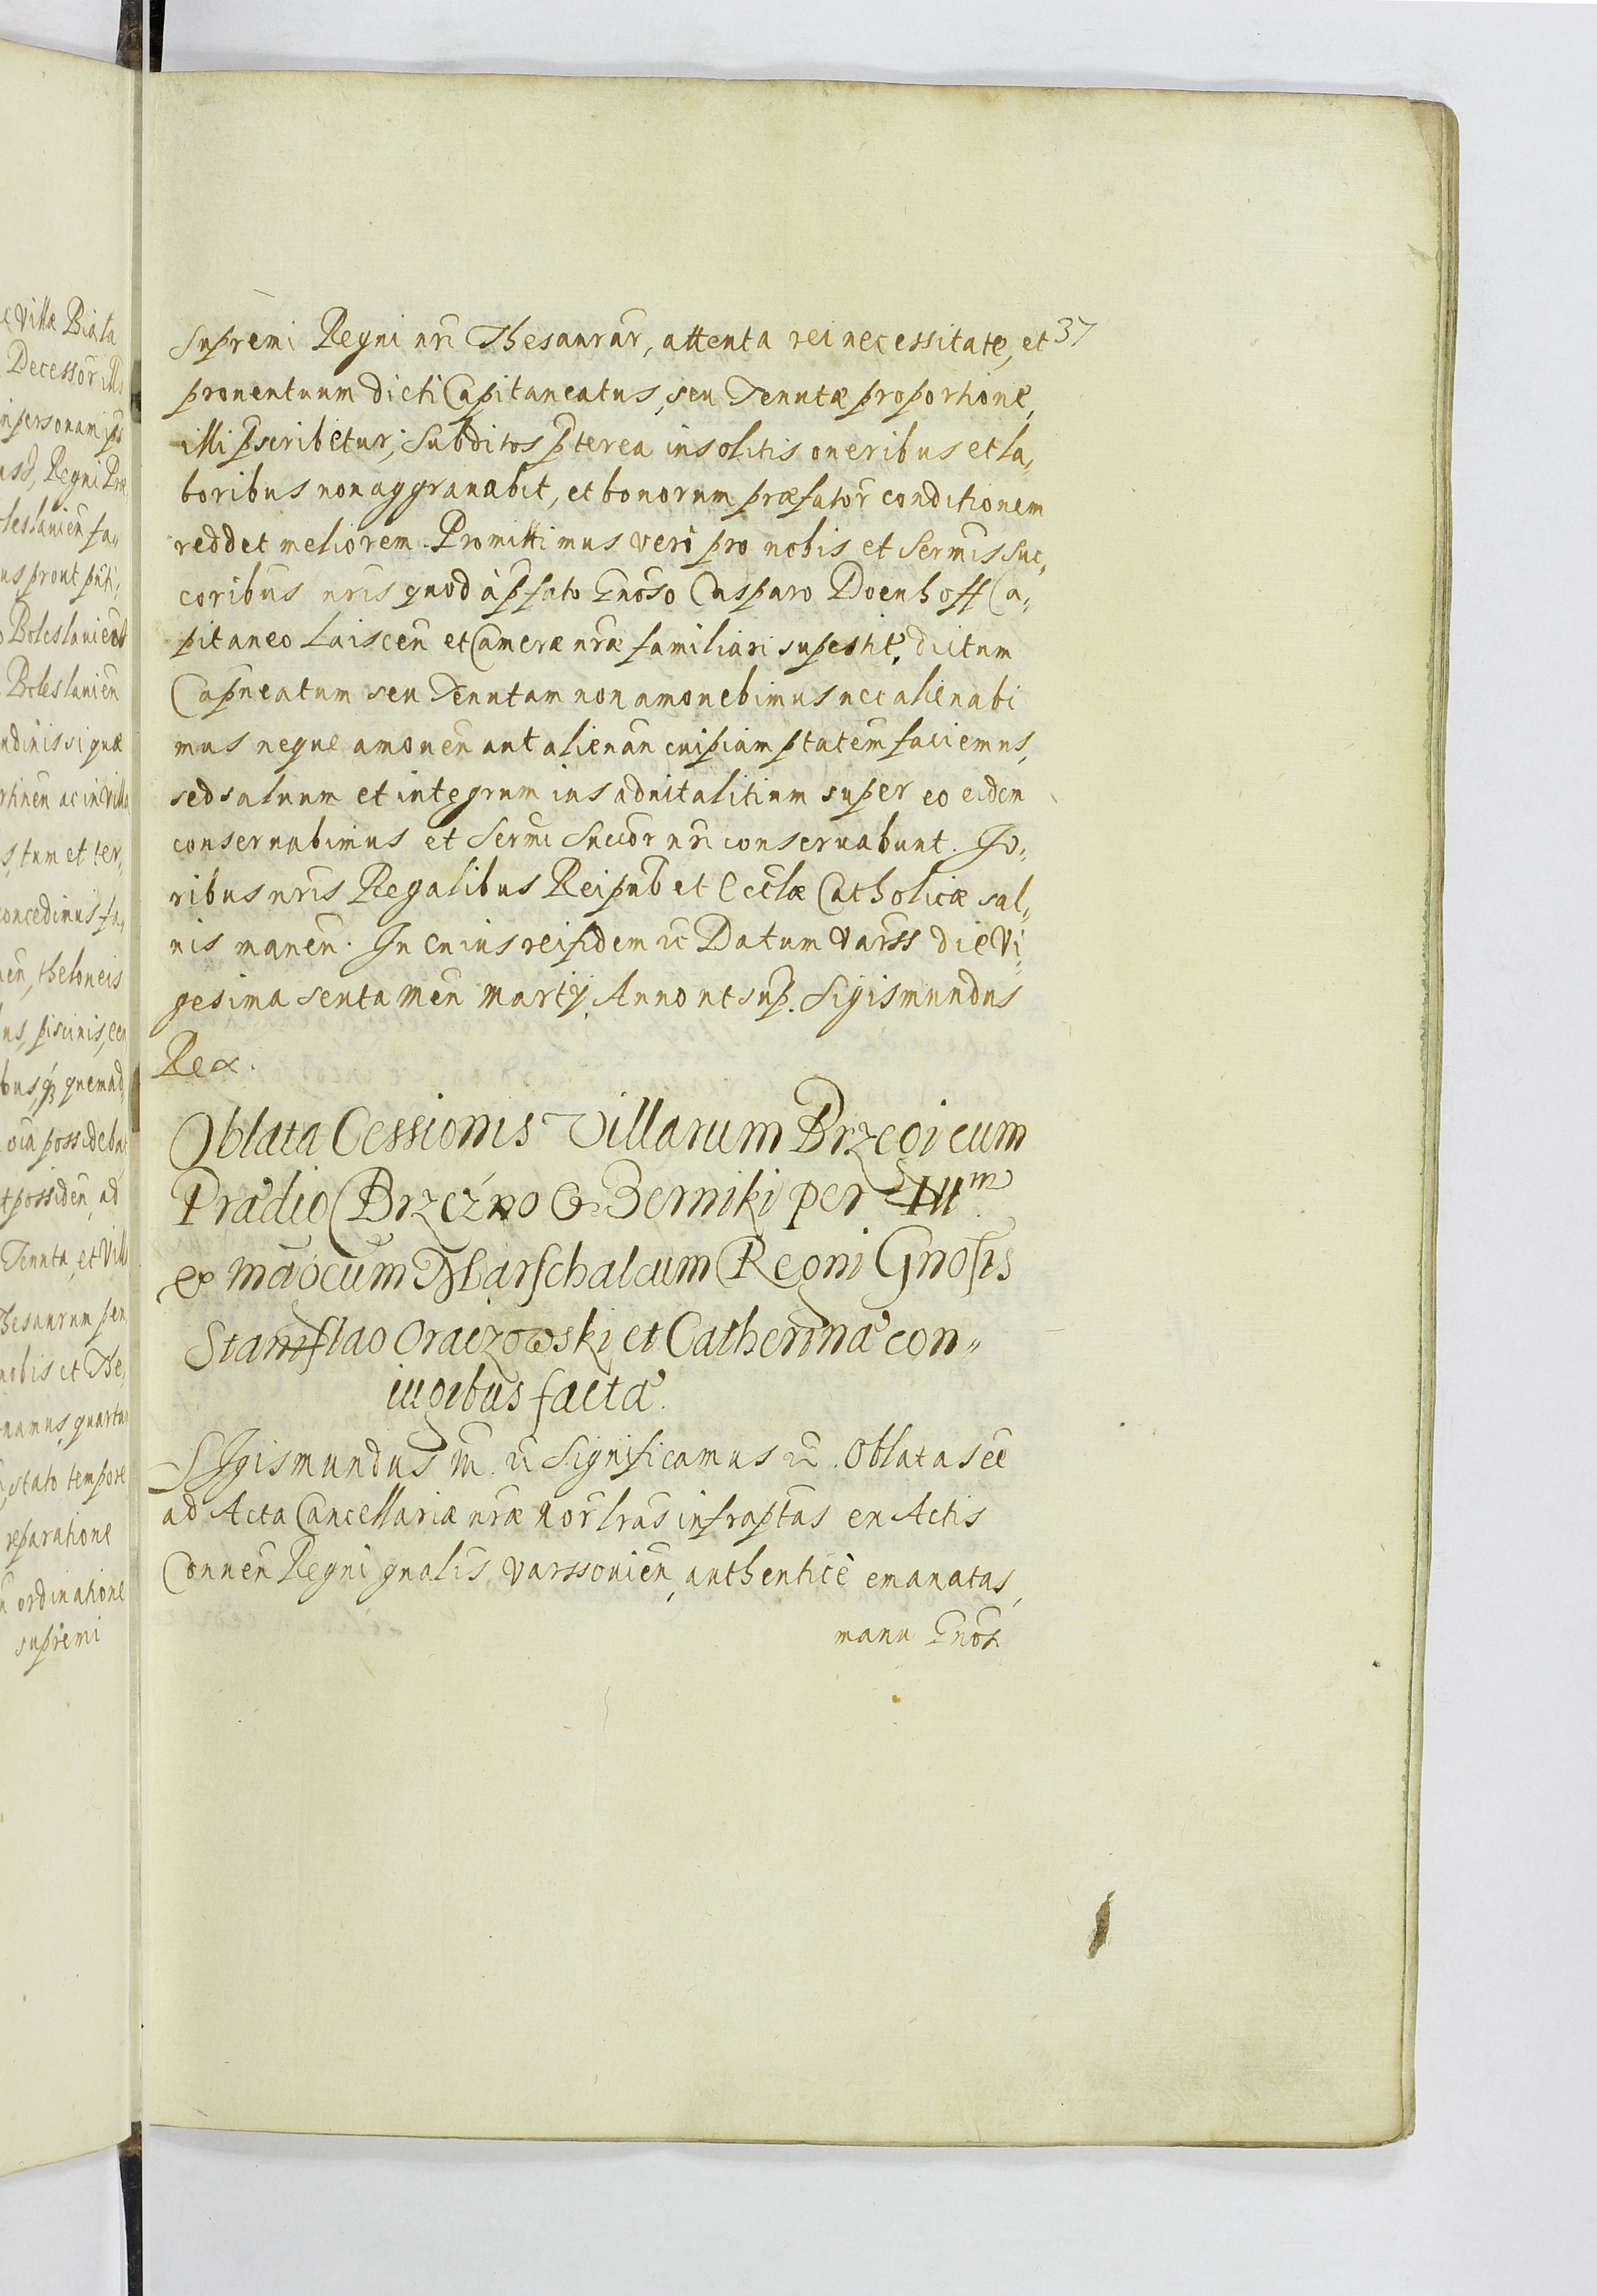 e Villæ Biała
Decessor illi
in personam ips
usd, Regni Præ,
leslauien fa,,
us prout pnti,
Boleslauien
Boleslauien
udinis si quæ
rtinen ac in villa
s, tum et ter,
concedimus fa,
en, theloneis
us, piscinis,
bus, q quemad,
possideba
t possiden, ad
Tenuta, et Vill
Thesaurum
nobis et The,
namus quartu
stato tempore
reparatione
ordinatione
supremi
supremi Regni nri Thesaurar, attenta rei necessitate, et 37
prouentuum dicti Capitaneatus, seu Tenutæ proportione,
illi pscribetur; Subditos pterea insolitis oneribus et la,
boribus non aggrauabit, et bonorum præfator conditionem
reddet meliorem. Promittimus vero pro nobis et Sermis suc,
coribus nris quod à pfato Gnoso Casparo Doenhoff Ca,
pitaneo Laiscen et Cameræ nræ familiari supestit, dictum
Capneatum seu Tenutam non amouebimus nec alienabi
mus neque amouen aut alienan cuipiam ptatem faciemus,
sed saluum et integrum ius aduitalitium super eo eidem
conseruabimus et Sermi Succor nri conseruabunt. Ju,
ribus nris Regalibus Reipub et Ecclæ Catholicæ sal,
uis manen. In cuius rei fidem &c Datum Varss die Vi,
gesima sexta Men Martij, Anno ut sup. Sigismundus
Rex.
Oblata Cessionis Villarum Brzegi cum
Prædio Brzeźno & Zerniki per Illm
& Mag̃cum Marschalcum Regni Gnosis
Stanislao Oraczowski et Catherina con,,
iugibus facta.
SIgismundus III. &c Significamus &c. Oblatas ee
ad Acta Cancellariæ nræ Lras infraptas ex Actis
Conuen Regni gnalis Varssouien, authenticè emanatas,
manu Gnos